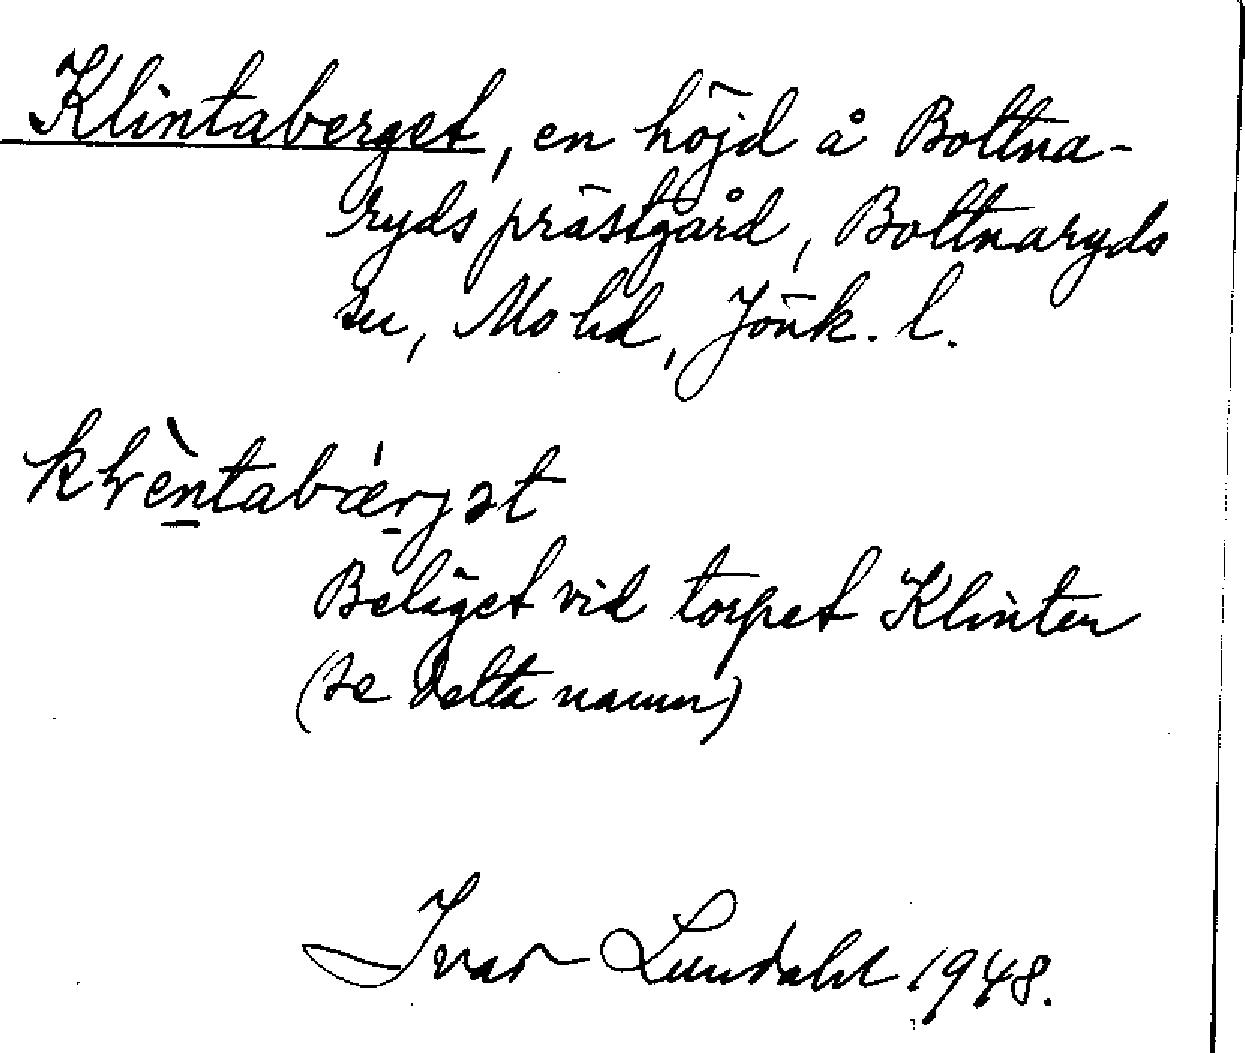 Klintaberget, en höjd å Bottna-
ryds prästgård, Bottnaryds
sn, Mo hd, Jönk. l.
Beläget vid torpet Klinten
(se detta namn)
Ivar Lundahl 1948.